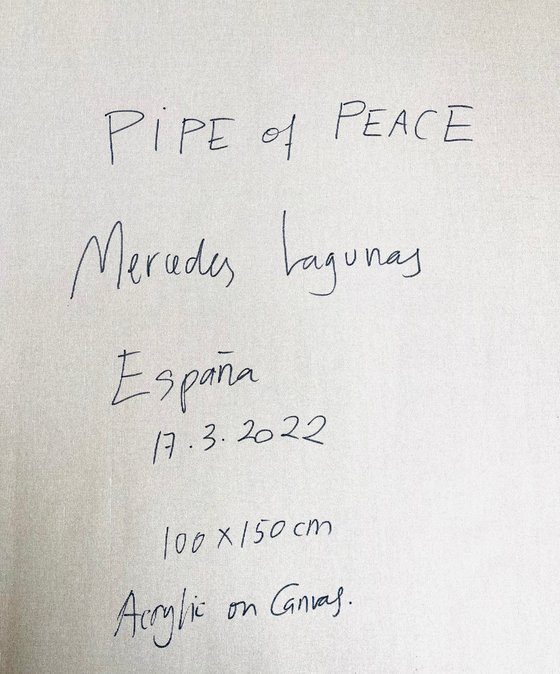 PiPE of PEACE
Mercedes Lagunas
España
17.3.2022
100 x 150 cm
Acrylic on Canvas.